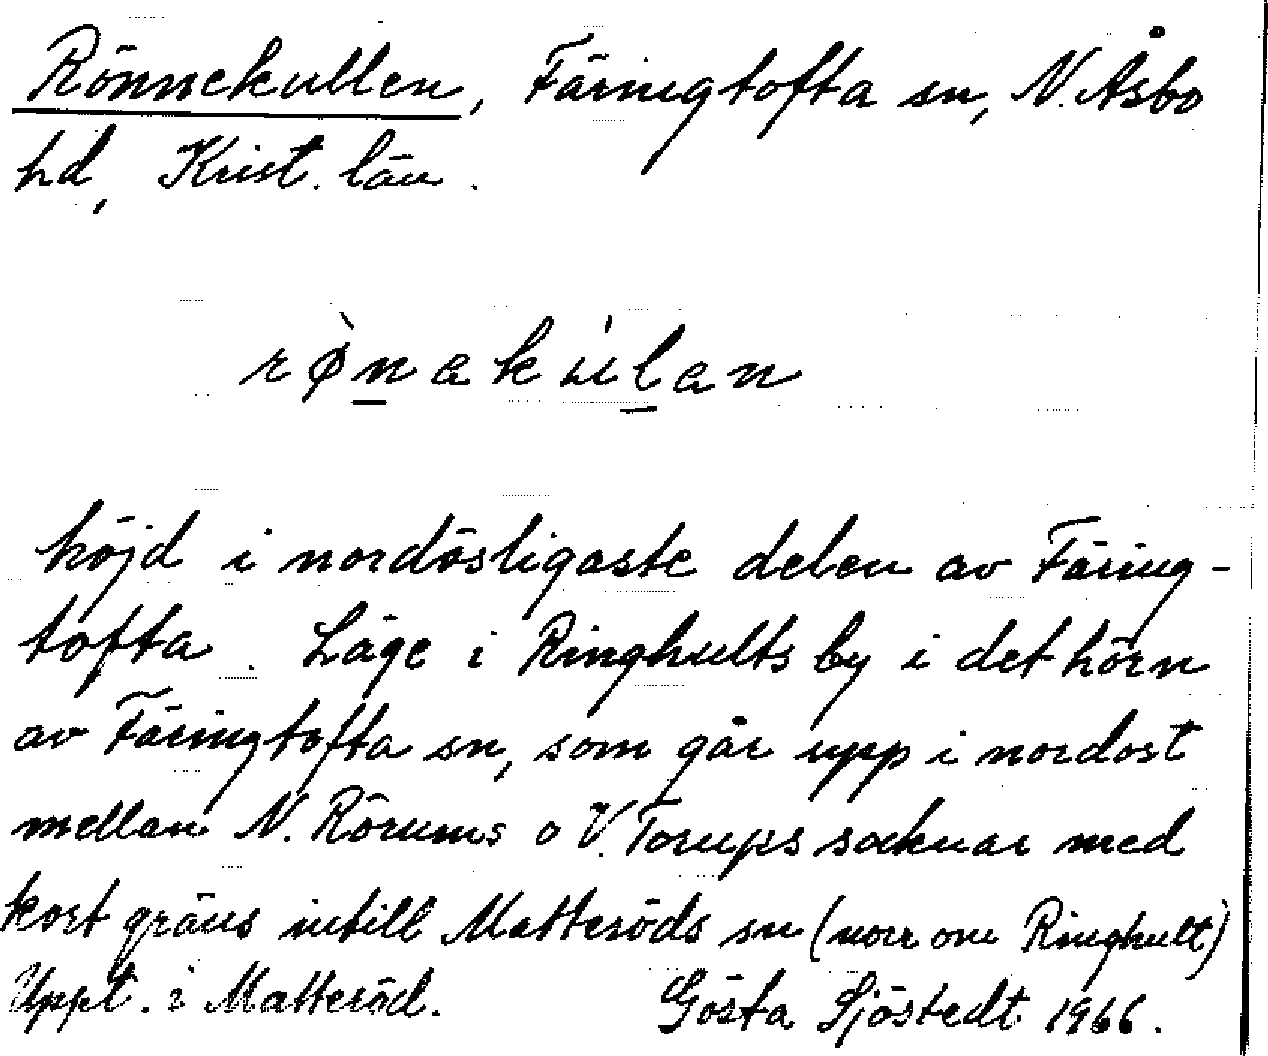 Rönnekullen, Färingtofta sn, N. Åsbo
hd, Krist. län.
rø̀nakúlan
höjd i nordösligaste delen av Färing-
tofta. Läge i Ringhults by i det hörn
av Färingtofta sn, som går upp i nordost
mellan N. Rörums o V. Torups socknar med
kort gräns intill Matteröds sn (norr om Ringhult)
Uppt. i Matteröd. Gösta Sjöstedt 1966.